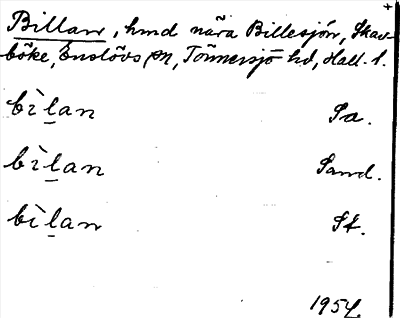 Billan, hmd nära Billesjön, Skav-
böke, Enslövs sn, Tönnersjö hd, Hall. l.
bìḻan Sa.
bìḻan Sand.
bìḻan St.
1954.